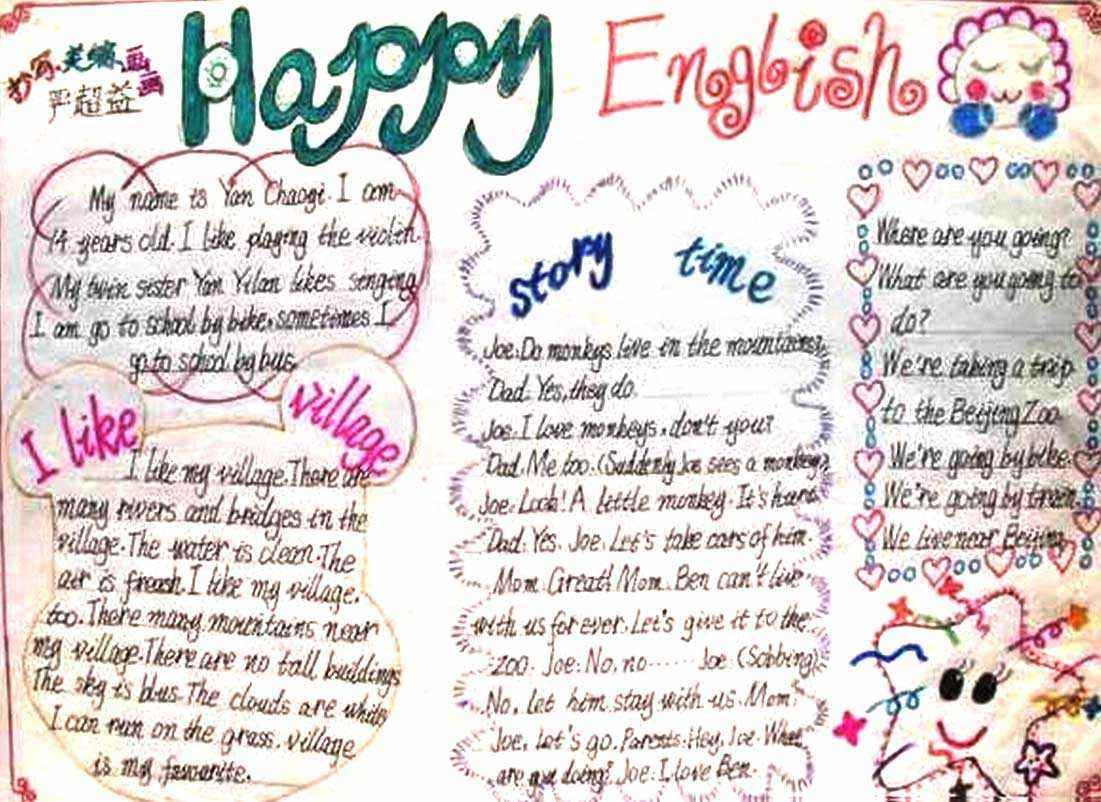 抄写、美编、画画
严超益
Happy English
My name is Yan Chaogi. I am
14 years old. I like playing the violin.
My twin sister Yan Yilan likes singing
I am go to school by bike, sometimes I
go to school by bus.
I like village
I like my village. There are
many rivers and bridges in the
village. The water is clean. The
air is freash. I like my village.
too. There many mountains near
my village. There are no tall buildings
The sky is blus. The clouds are white
I can run on the grass. village
is my favourite.
story time
Joe: Do monkys live in the mountains?
Dad: Yes, they do.
Joe: I love monkeys, don't you?
Dad: Me too. (Suddenly Joe sees a monkey)
Joe: Look! A little monkey. It's hurt
Dad: Yes. Joe: Let's take cars of him.
Mom: Great! Mom: Ben can't live
with us for ever. Let's give it to the
zoo. Joe: No, no…… Joe: (Sobbing)
No, let him stay with us. Mom:
Joe, let's go. Parents: Hey, Joe. What
are you doing? Joe: I love Ben.
Where are you going?
What are you going to
do?
We're taking a trip
to the Beijing Zoo
We're going by bike.
We're going by train.
We live near Beijing